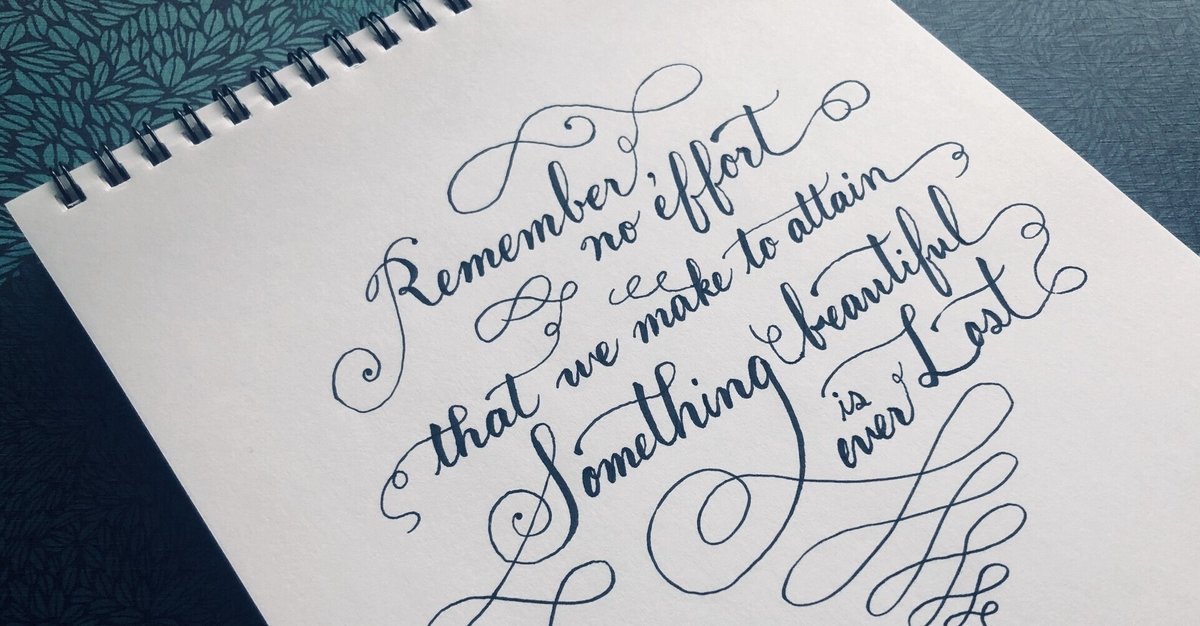 Remember, no effort
that we make to attain
Something beautiful
is ever Lost